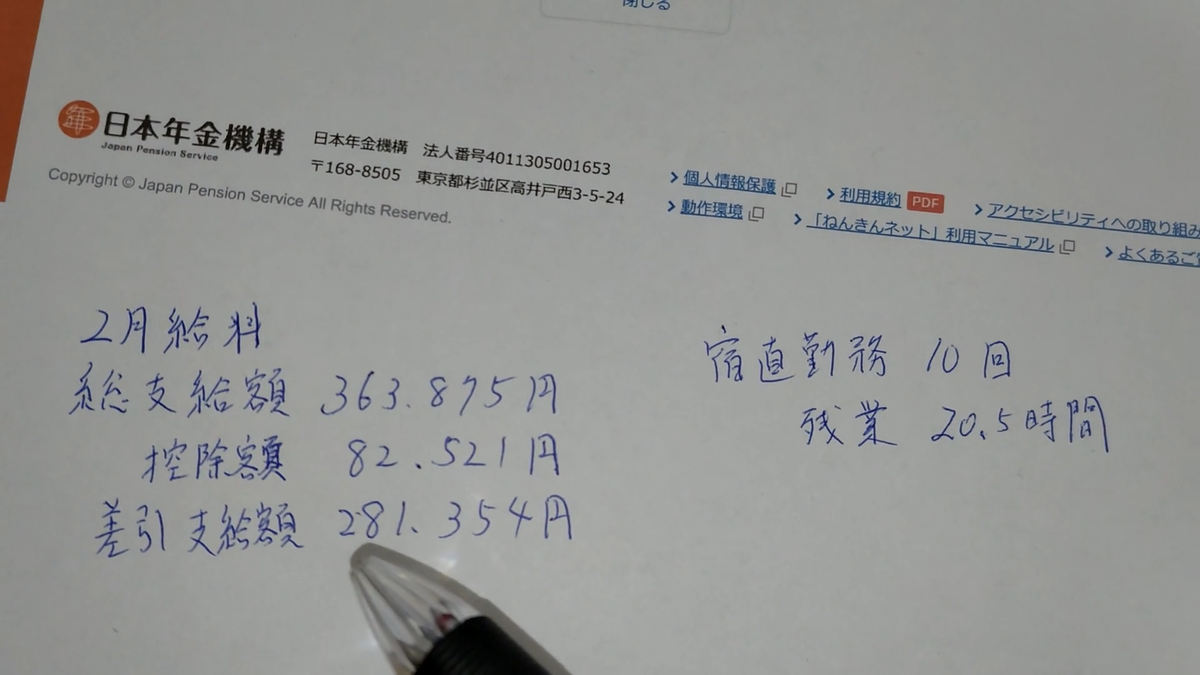 閉じる
日本年金機構
Japan Pension Service
日本年金機構 法人番号4011305001653
〒168-8505 東京都杉並区高井戸西3-5-24
Copyright © Japan Pension Service All Rights Reserved.
個人情報保護
利用規約 PDF
アクセシビリティへの取り組み
動作環境
「ねんきんネット」利用マニュアル
よくあるご
2月給料
総支給額 363.875円
控除額 82.521円
差引支給額 281.354円
宿直勤務 10回
残業 20.5時間